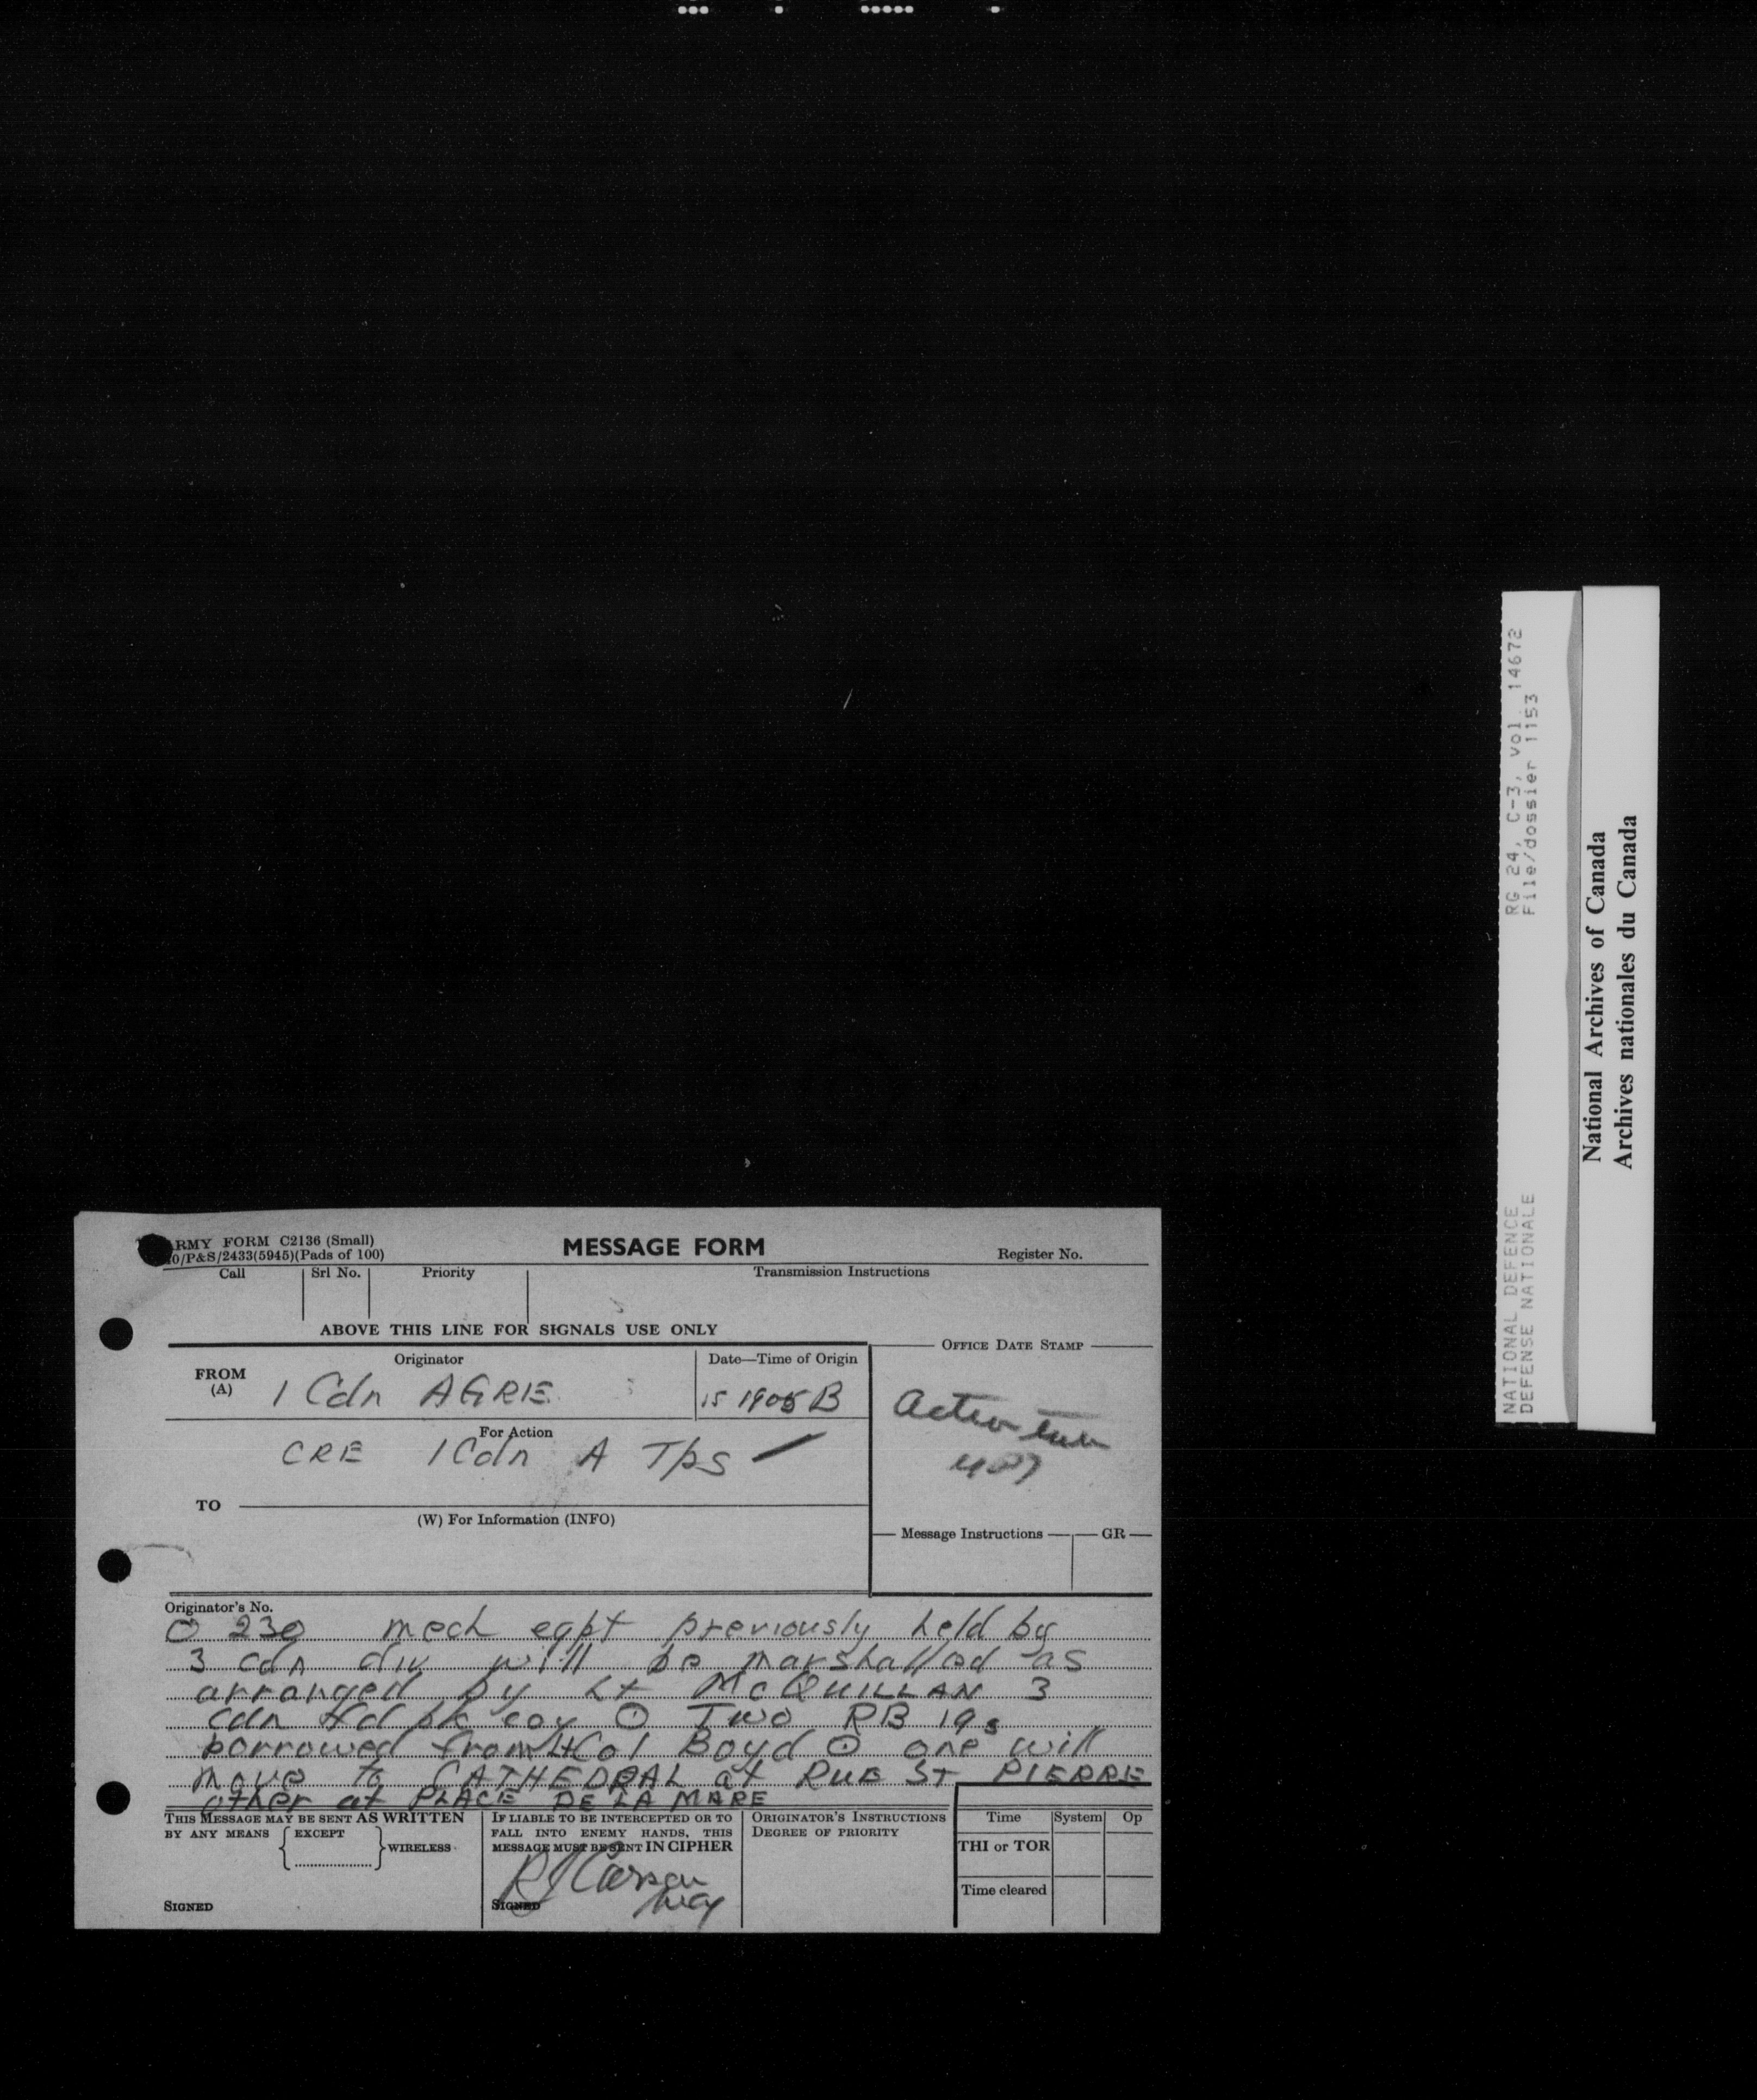 ARMY FORM C2136 (Small)
/P&S/2433(5945)(Pads of 100)
MESSAGE FORM
Register No.
Call Srl No. Priority Transmission Instructions
ABOVE THIS LINE FOR SIGNALS USE ONLY
FROM (A)
Originator
1 Cdn AGRE
Date—Time of Origin
15 1905 B
OFFICE DATE STAMP
For Action
CRE 1 Cdn A Tps
TO
(W) For Information (INFO)
Message Instructions GR
Originator's No.
O 239 mech eqpt previously held by
3 cdn div will be marshalled as
arranged by Lt McQUILLAN 3
cdn fd pk coy ⊙ Two RB 19s
borrowed from Lt Col Boyd ⊙ one will
move to CATHEDRAL at RUE ST PIERRE
other at PLACE DE LA MARE
THIS MESSAGE MAY BE SENT AS WRITTEN
BY ANY MEANS { EXCEPT } WIRELESS
SIGNED
IF LIABLE TO BE INTERCEPTED OR TO
FALL INTO ENEMY HANDS, THIS
MESSAGE MUST BE SENT IN CIPHER
RJ Carson
SIGNED
ORIGINATOR'S INSTRUCTIONS
DEGREE OF PRIORITY
Time System Op
THI or TOR
Time cleared
NATIONAL DEFENCE RG 24, C-3, vol. 14672
DEFENSE NATIONALE File/dossier 1153
National Archives of Canada
Archives nationales du Canada